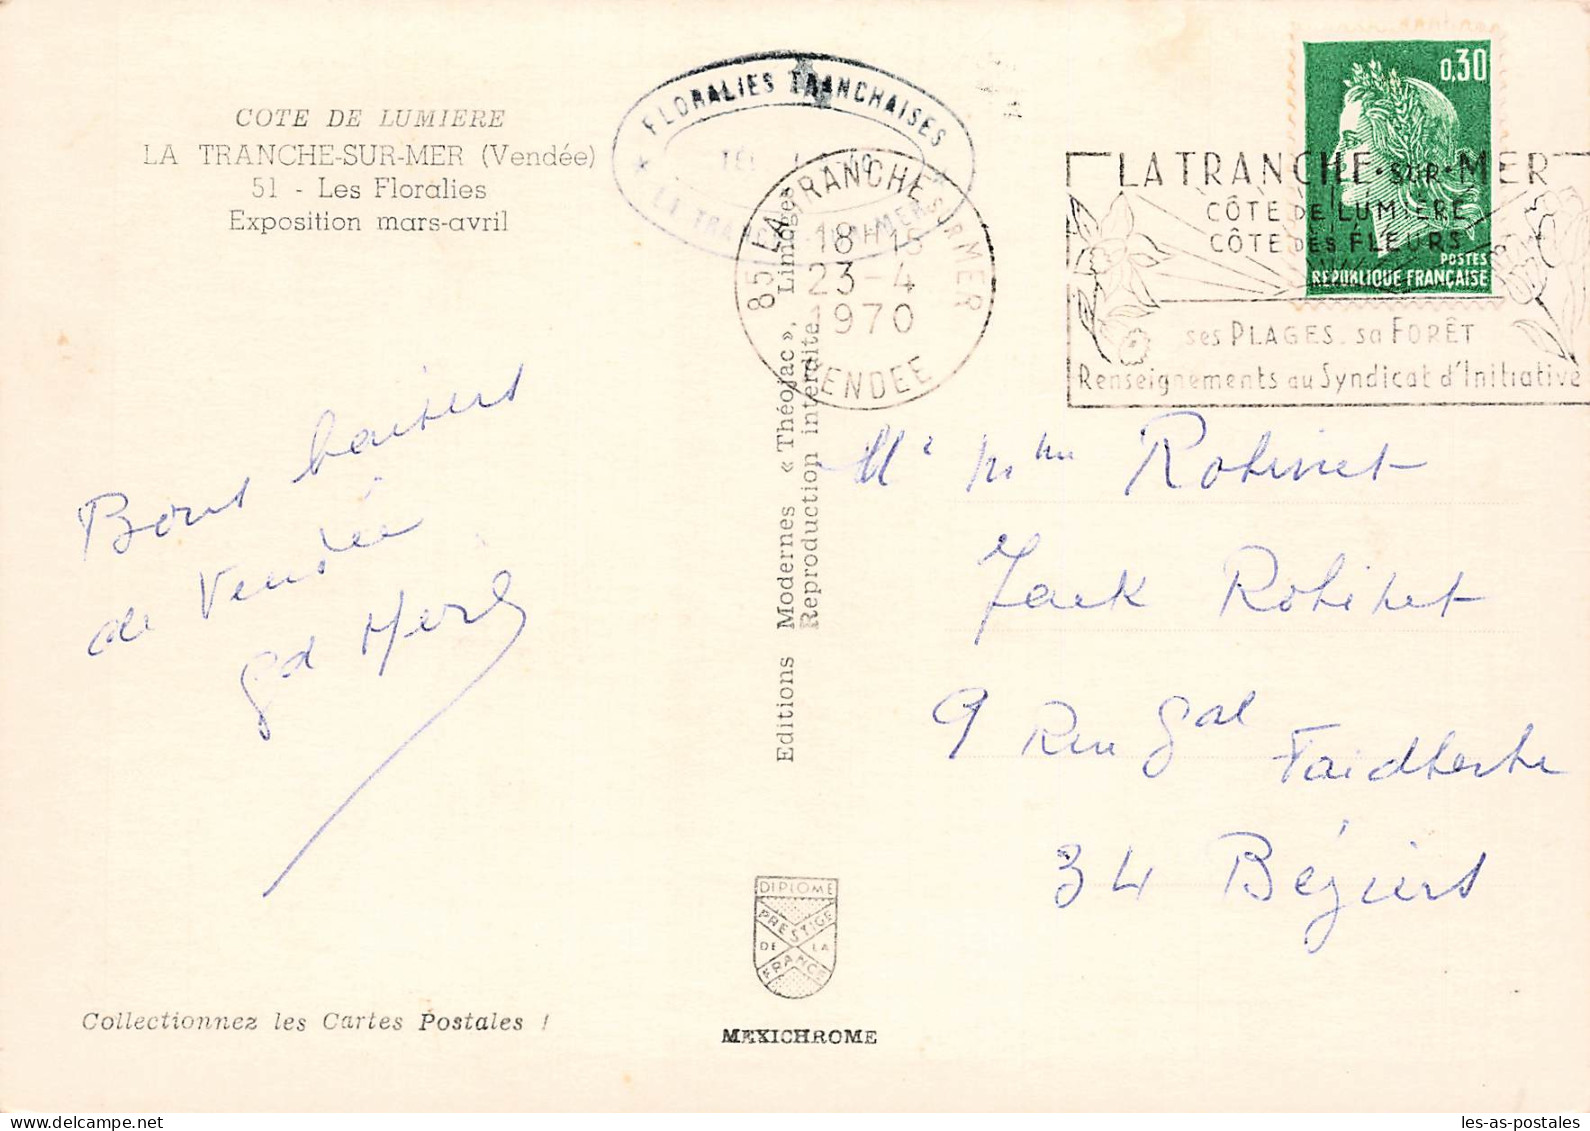 COTE DE LUMIERE
LA TRANCHE-SUR-MER (Vendée)
51 - Les Floralies
Exposition mars-avril
FLORALIES TRANCHAISES
85 LA TRANCHE SUR MER
18H15
23-4
1970
VENDEE
0,30
POSTES
REPUBLIQUE FRANÇAISE
LA TRANCHE-SUR-MER
CÔTE DE LUMIÈRE
CÔTE DES FLEURS
ses PLAGES. sa FORÊT
Renseignements au Syndicat d'Initiative
Bons baisers
de Vendée
Editions Modernes « Théojac », Limoges
Reproduction interdite
Robinet
Jack Robinet
9 Rue Gal
Faidherbe
34 Béziers
DIPLOME
PRESTIGE
DE LA
FRANCE
Collectionnez les Cartes Postales !
MEXICHROME
les-as-postales